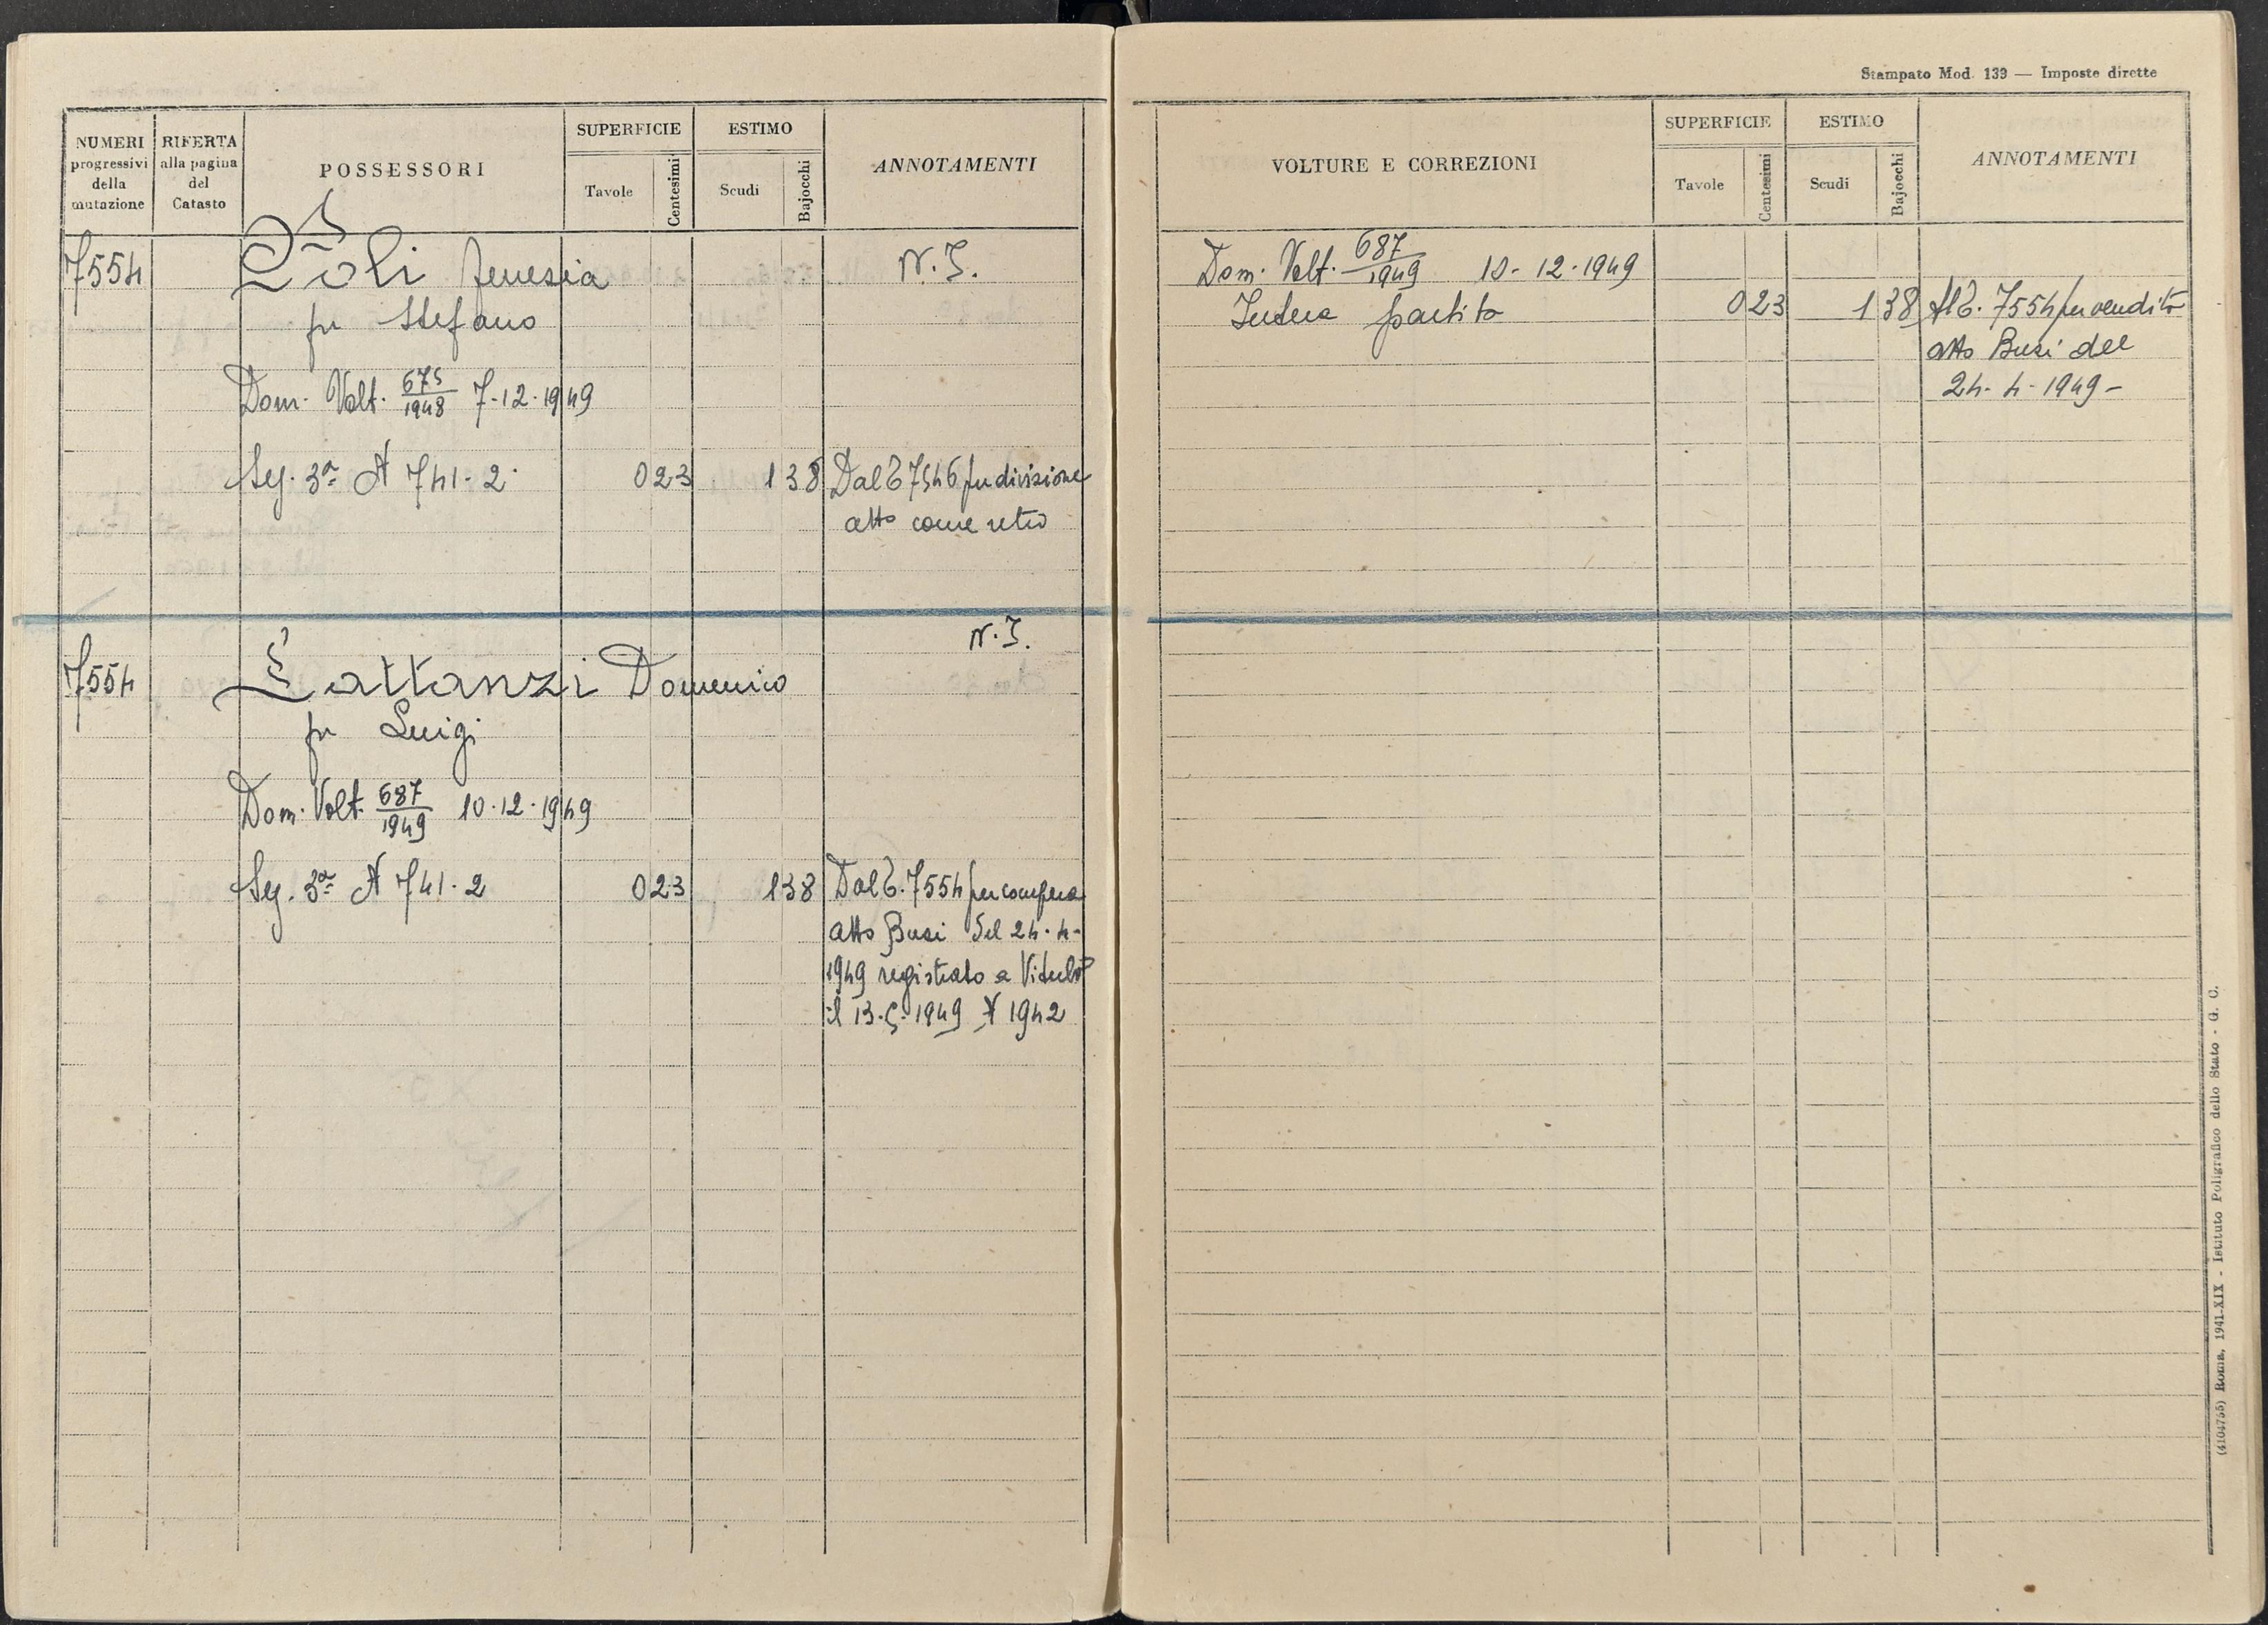 Stampato Mod. 139 — Imposte dirette
NUMERI progressivi della mutazione
RIFERTA alla pagina del Catasto
POSSESSORI
SUPERFICIE
Tavole
Centesimi
ESTIMO
Scudi
Bajocchi
ANNOTAMENTI
7554 Poli N. I.
fu Stefano
Dom. Volt. 675/1948 7-12-1949
Sez. 3ª N 741-2 0 23 1 38 Dal 7546 per divisione
atto come retro
7554 Lattanzi Domenico N. I.
fu Luigi
Dom. Volt. 687/1949 10-12-1949
Sez. 3ª N 741-2 0 23 1 38 Dal 7554 per compera
atto Busi del 24-4-
1949 registrato a
il 13-5-1949 N 1942
VOLTURE E CORREZIONI
SUPERFICIE
Tavole
Centesimi
ESTIMO
Scudi
Bajocchi
ANNOTAMENTI
Dom. Volt. 687/1949 10-12-1949
Intera partita 0 23 1 38 Al 7554 per vendita
atto Busi del
24-4-1949-
(4104755) Roma, 1941-XIX - Istituto Poligrafico dello Stato - G. C.